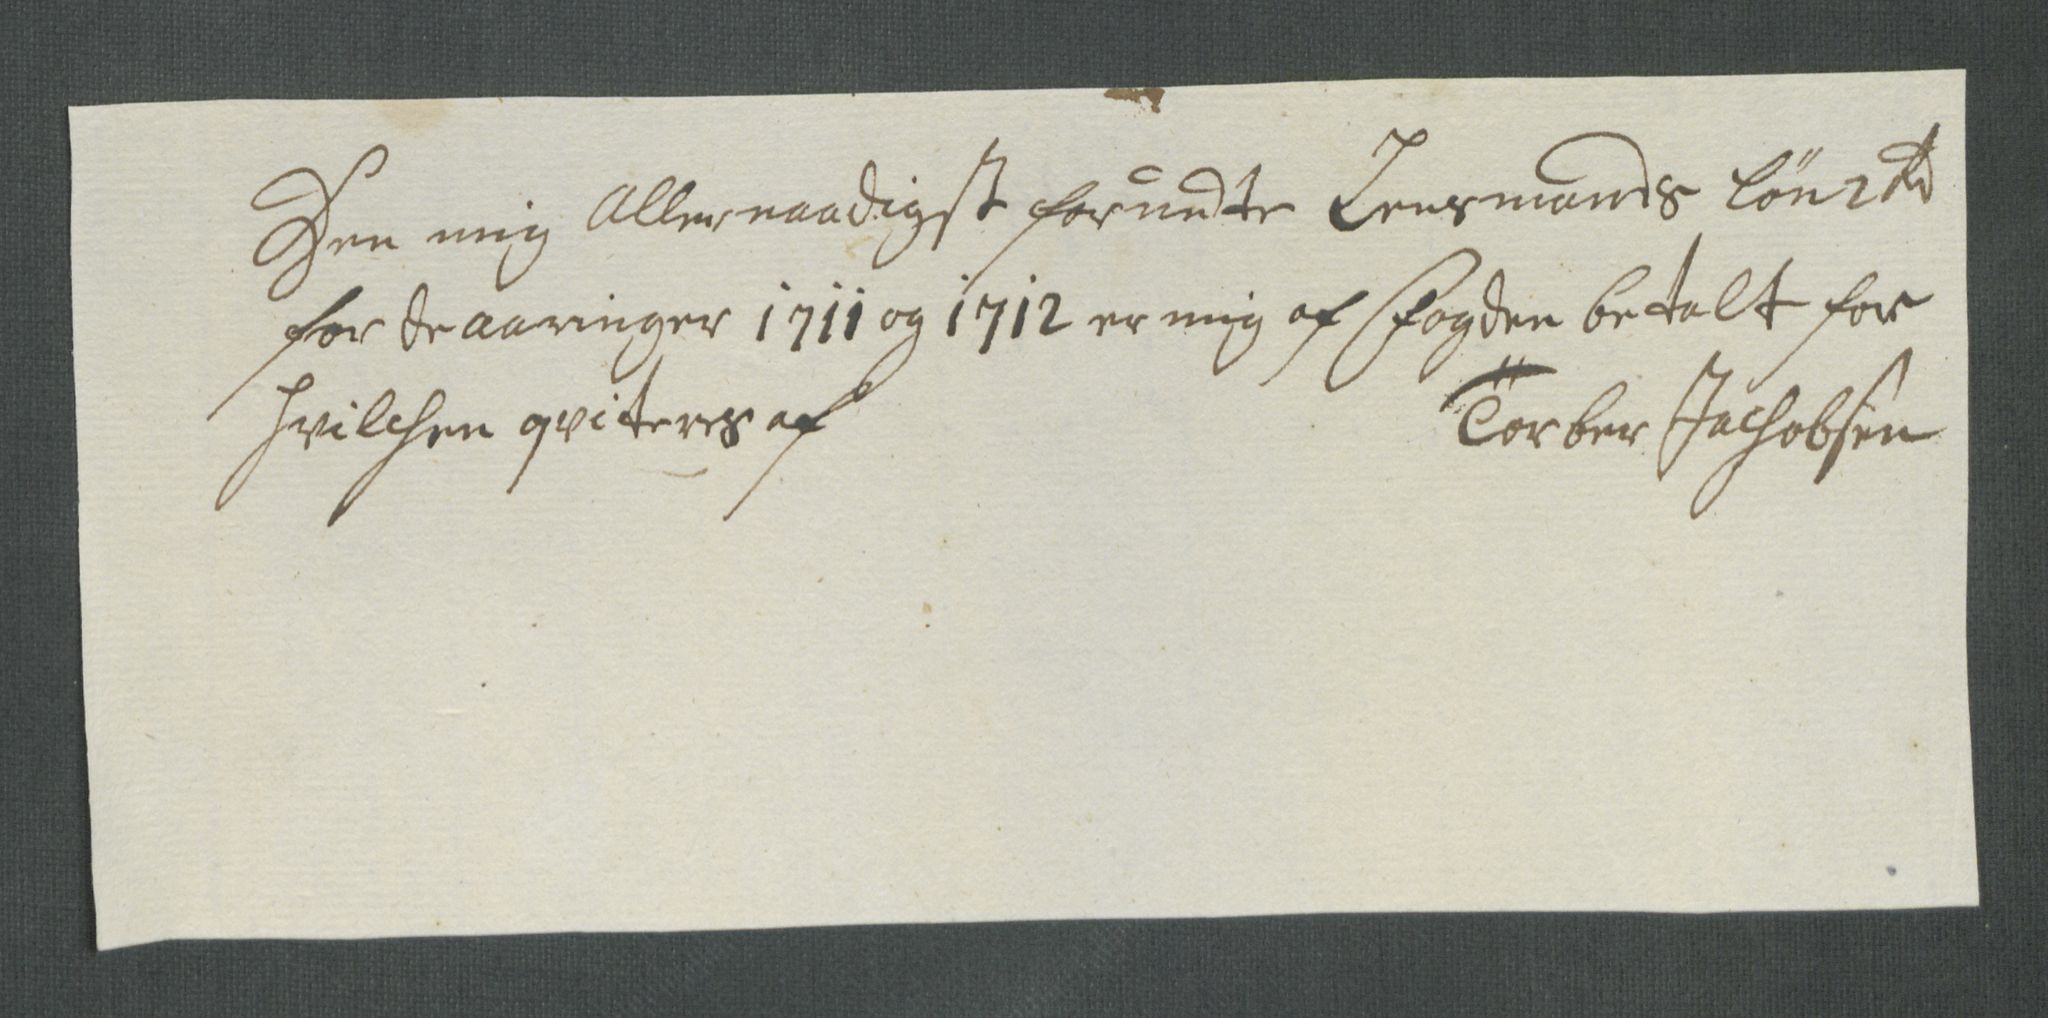 Den mig Allernaadigst forundte Lensmands Løn 2 Rd
for de aaringer 1711 og 1712 er mig af Fogden betalt for
hvilchen qviteres af Törber Jachobsen